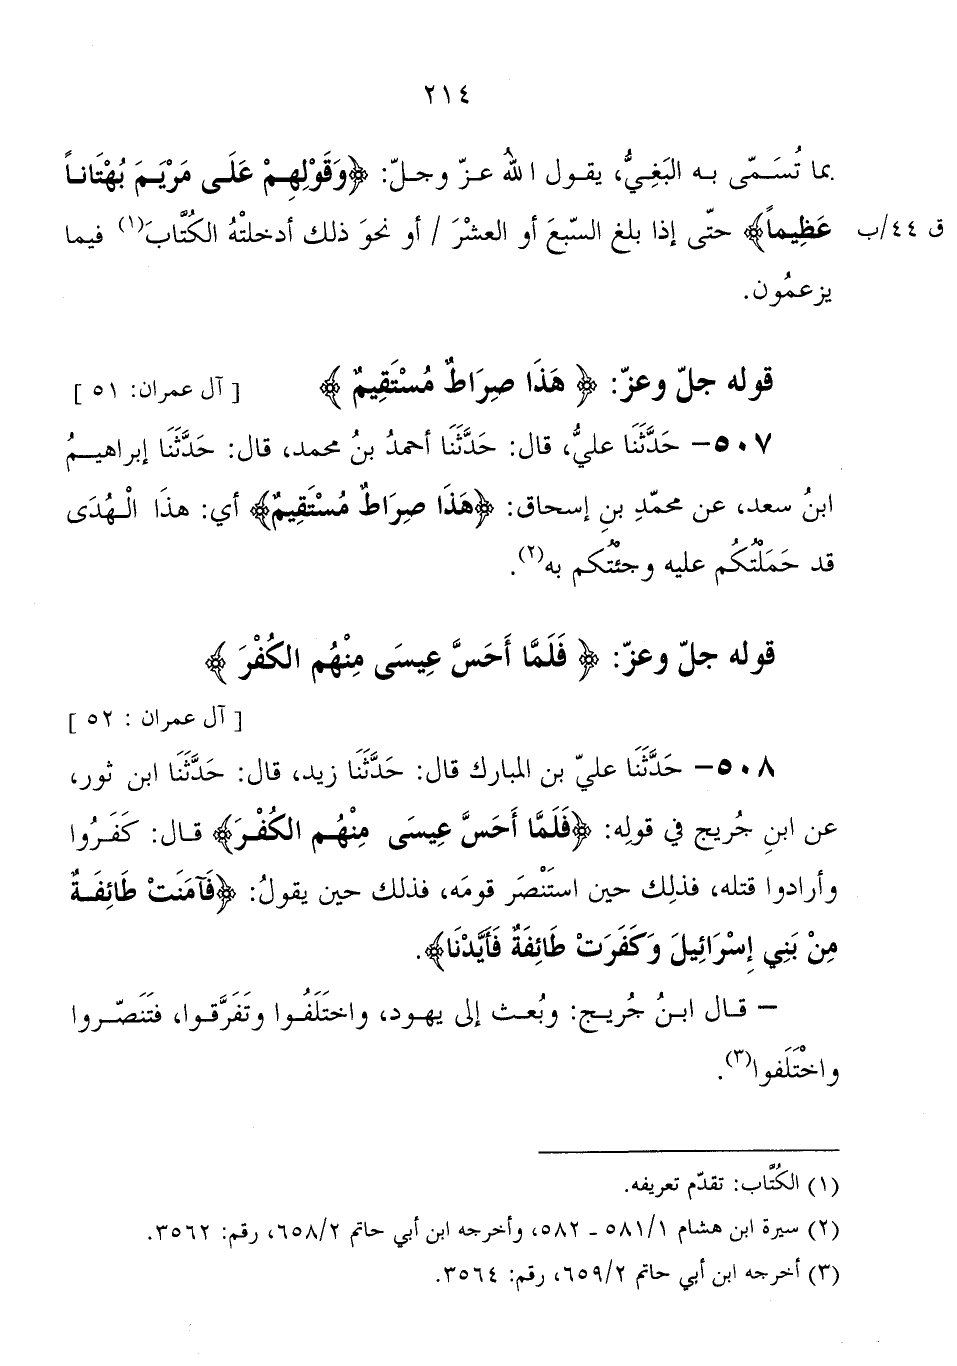 ٢١٤
بما تُسَمّى به البَغِيُّ، يقول اللهُ عزّ وجلّ: ﴿وَقَوْلِهِمْ عَلَى مَرْيَمَ بُهْتَاناً
عَظِيماً﴾ حتّى إذا بلغ السّبعَ أو العشْرَ / أو نحوَ ذلك أدخلتْهُ الكُتَّابَ(١) فيما
ق ٤٤/ب
يزعمُون.
قوله جلّ وعزّ: ﴿ هَذَا صِرَاطٌ مُسْتَقِيمٌ ﴾ [ آل عمران: ٥١ ]
٥٠٧– حَدَّثَنَا عليٌّ، قال: حَدَّثَنَا أحمدُ بنُ محمد، قال: حَدَّثَنَا إبراهيمُ
ابنُ سعد، عن محمّدِ بنِ إسحاق: ﴿هَذَا صِرَاطٌ مُسْتَقِيمٌ﴾ أي: هذَا الْهُدَى
قد حَمَلْتُكُم عليه وجئْتُكم به(٢).
قوله جلّ وعزّ: ﴿ فَلَمَّا أَحَسَّ عِيسَى مِنْهُم الكُفْرَ ﴾
[ آل عمران : ٥٢ ]
٥٠٨– حَدَّثَنَا عليّ بن المبارك قال: حَدَّثَنَا زيد، قال: حَدَّثَنَا ابن ثور،
عن ابنِ جُريج في قولِه: ﴿فَلَمَّا أَحَسَّ عِيسَى مِنْهُم الكُفْرَ﴾ قال: كَفَرُوا
وأرادوا قتله، فذلِك حين استَنْصَرَ قومَه، فذلك حين يقولُ: ﴿فَآمَنَتْ طَائِفَةٌ
مِنْ بَنِي إِسْرَائِيلَ وَكَفَرَتْ طَائِفَةٌ فَأَيَّدْنَا﴾.
– قال ابنُ جُريج: وبُعث إلى يهود، واختَلَفُوا وتَفَرَّقوا، فتَنَصّروا
واخْتَلَفوا(٣).
(١) الكُتَّاب: تقدّم تعريفه.
(٢) سيرة ابن هشام ٥٨١/١ ـ ٥٨٢، وأخرجه ابن أبي حاتم ٦٥٨/٢، رقم: ٣٥٦٢.
(٣) أخرجه ابن أبي حاتم ٦٥٩/٢، رقم: ٣٥٦٤.